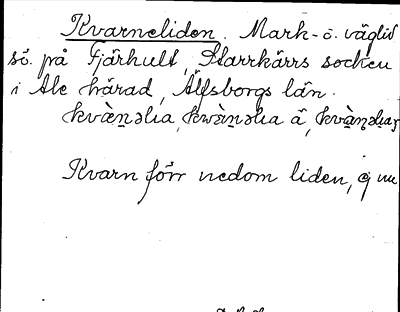 Kvarneliden. Mark- o. väglid
sö. på Fjärhult, Starrkärrs socken
i Ale härad, Älfsborgs län.
kvàṉəlıa, kwàṉəlıa å,
Kvarn förr nedom liden, ej nu